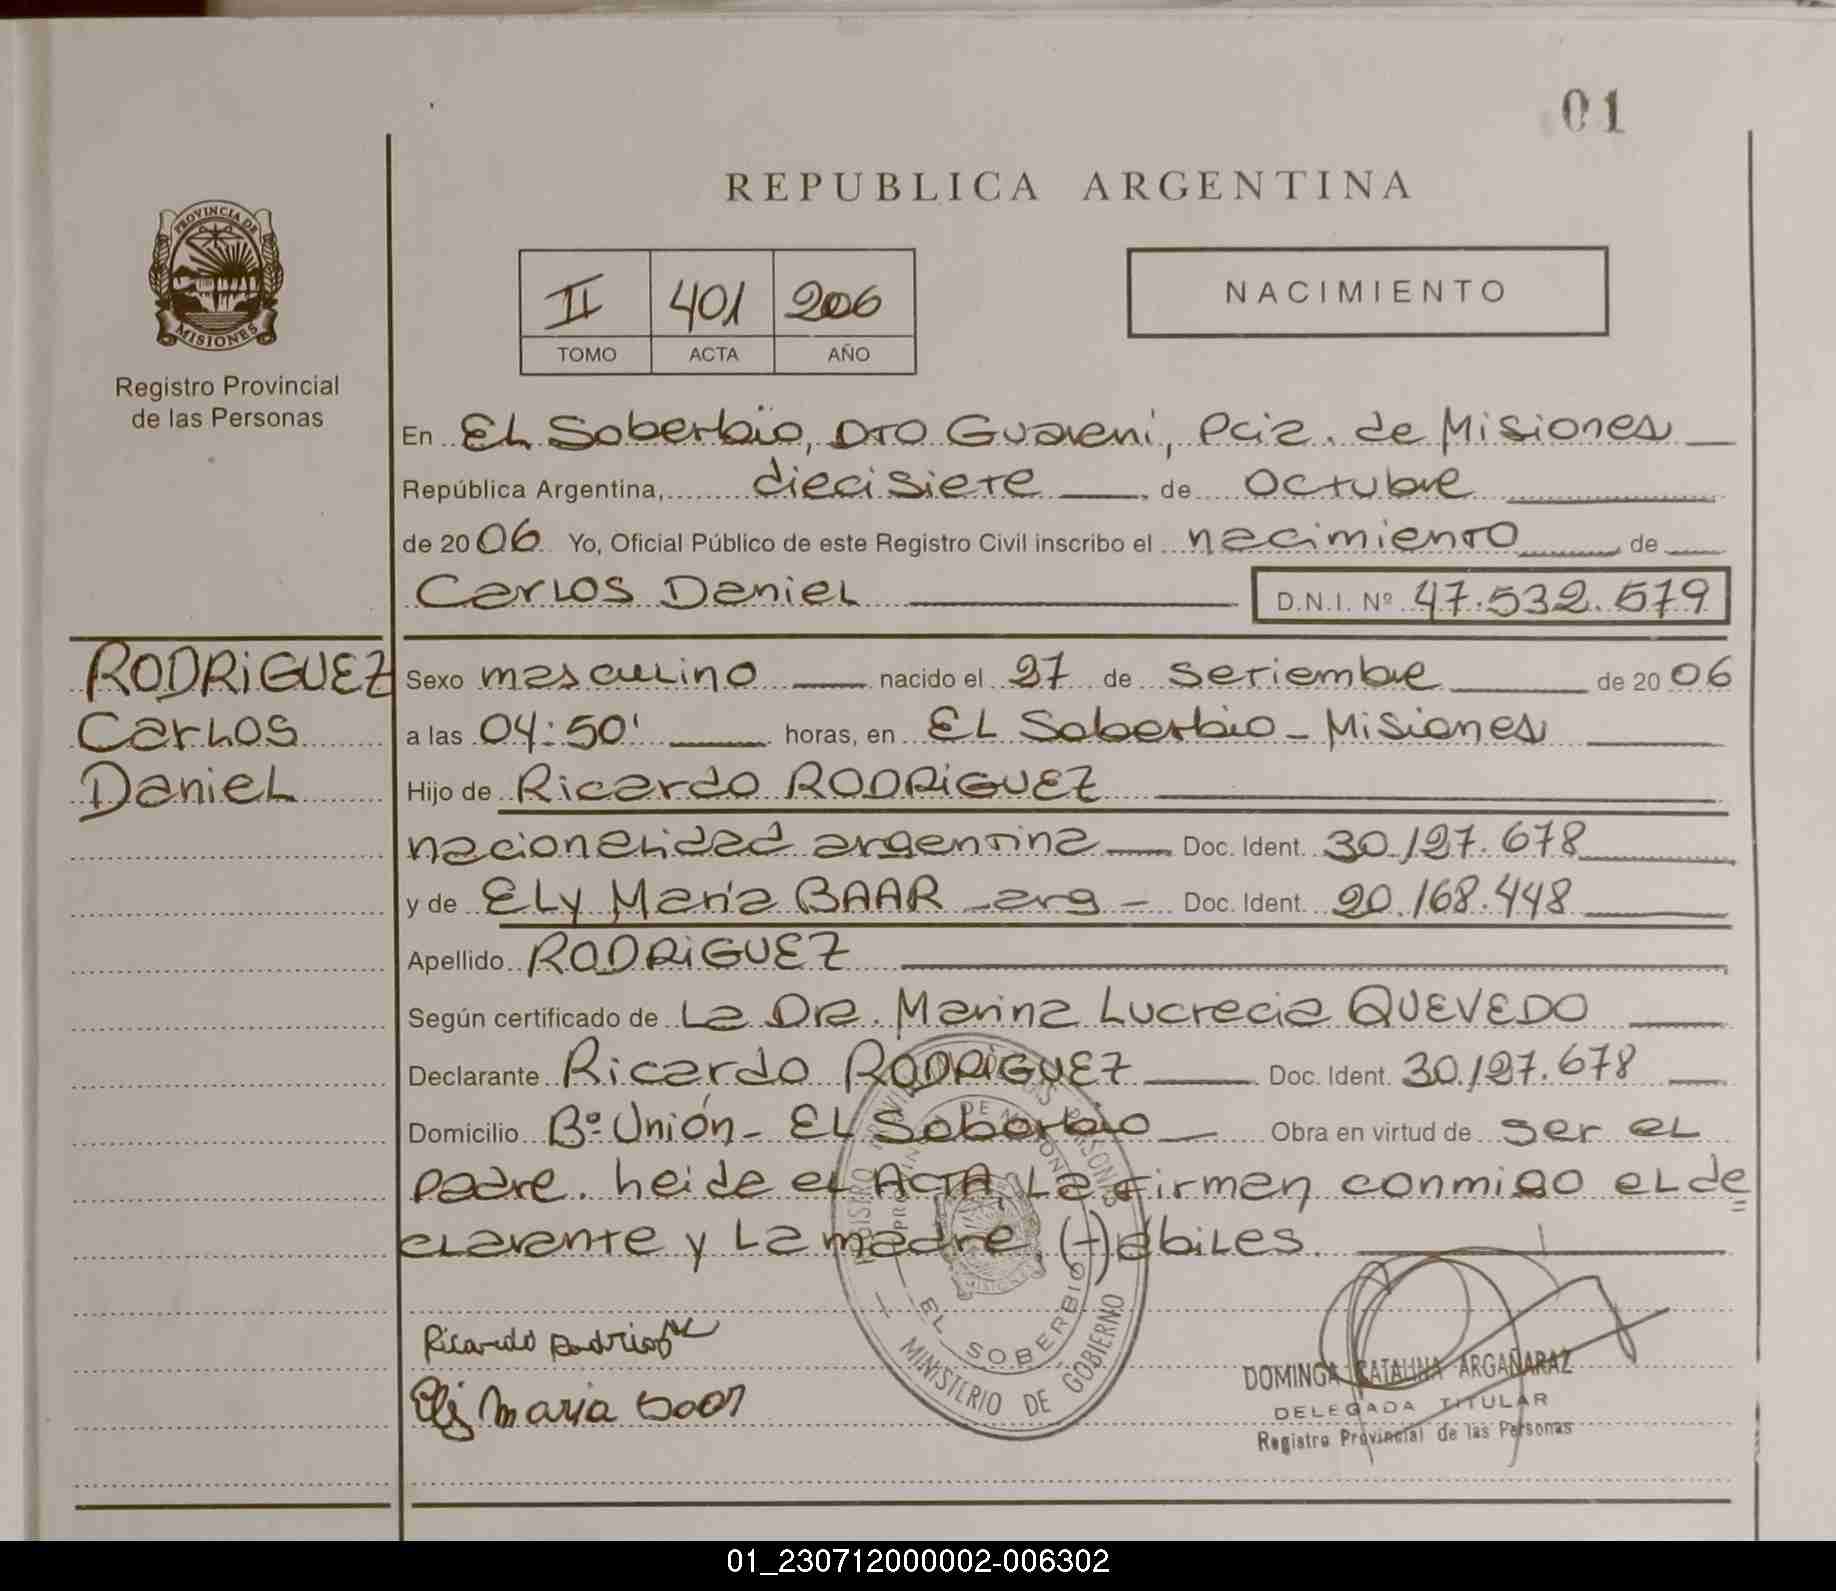 01
REPUBLICA ARGENTINA
PROVINCIA DE
MISIONES
Registro Provincial
de las Personas
II 401 206
TOMO ACTA AÑO
NACIMIENTO
En EL Soberbio, DTO Guarani, Pcia. de Misiones
República Argentina, diecisiete de Octubre
de 2006 Yo, Oficial Público de este Registro Civil inscribo el nacimiento de
Carlos Daniel D.N.I. Nº 47.532.579
RODRIGUEZ
Carlos
Daniel
Sexo masculino nacido el 27 de Setiembre de 2006
a las 04:50' horas, en EL Soberbio - Misiones
Hijo de Ricardo RODRIGUEZ
nacionalidad argentina Doc. Ident. 30.127.678
y de ELy María BAAR - arg - Doc. Ident. 20.168.448
Apellido RODRIGUEZ
Según certificado de La Dra. Marina Lucrecia QUEVEDO
Declarante Ricardo RODRIGUEZ Doc. Ident. 30.127.678
Domicilio Bº Unión - EL Soberbio Obra en virtud de ser el
padre. heida el ACTA, La firman conmigo el de
clarante y La madre, (+)ábiles.
EL SOBERBIO
MINISTERIO DE GOBIERNO
Ricardo Rodriguez
Eli Maria baar
DOMINGA CATALINA ARGAÑARAZ
DELEGADA TITULAR
Registro Provincial de las Personas
01_230712000002-006302